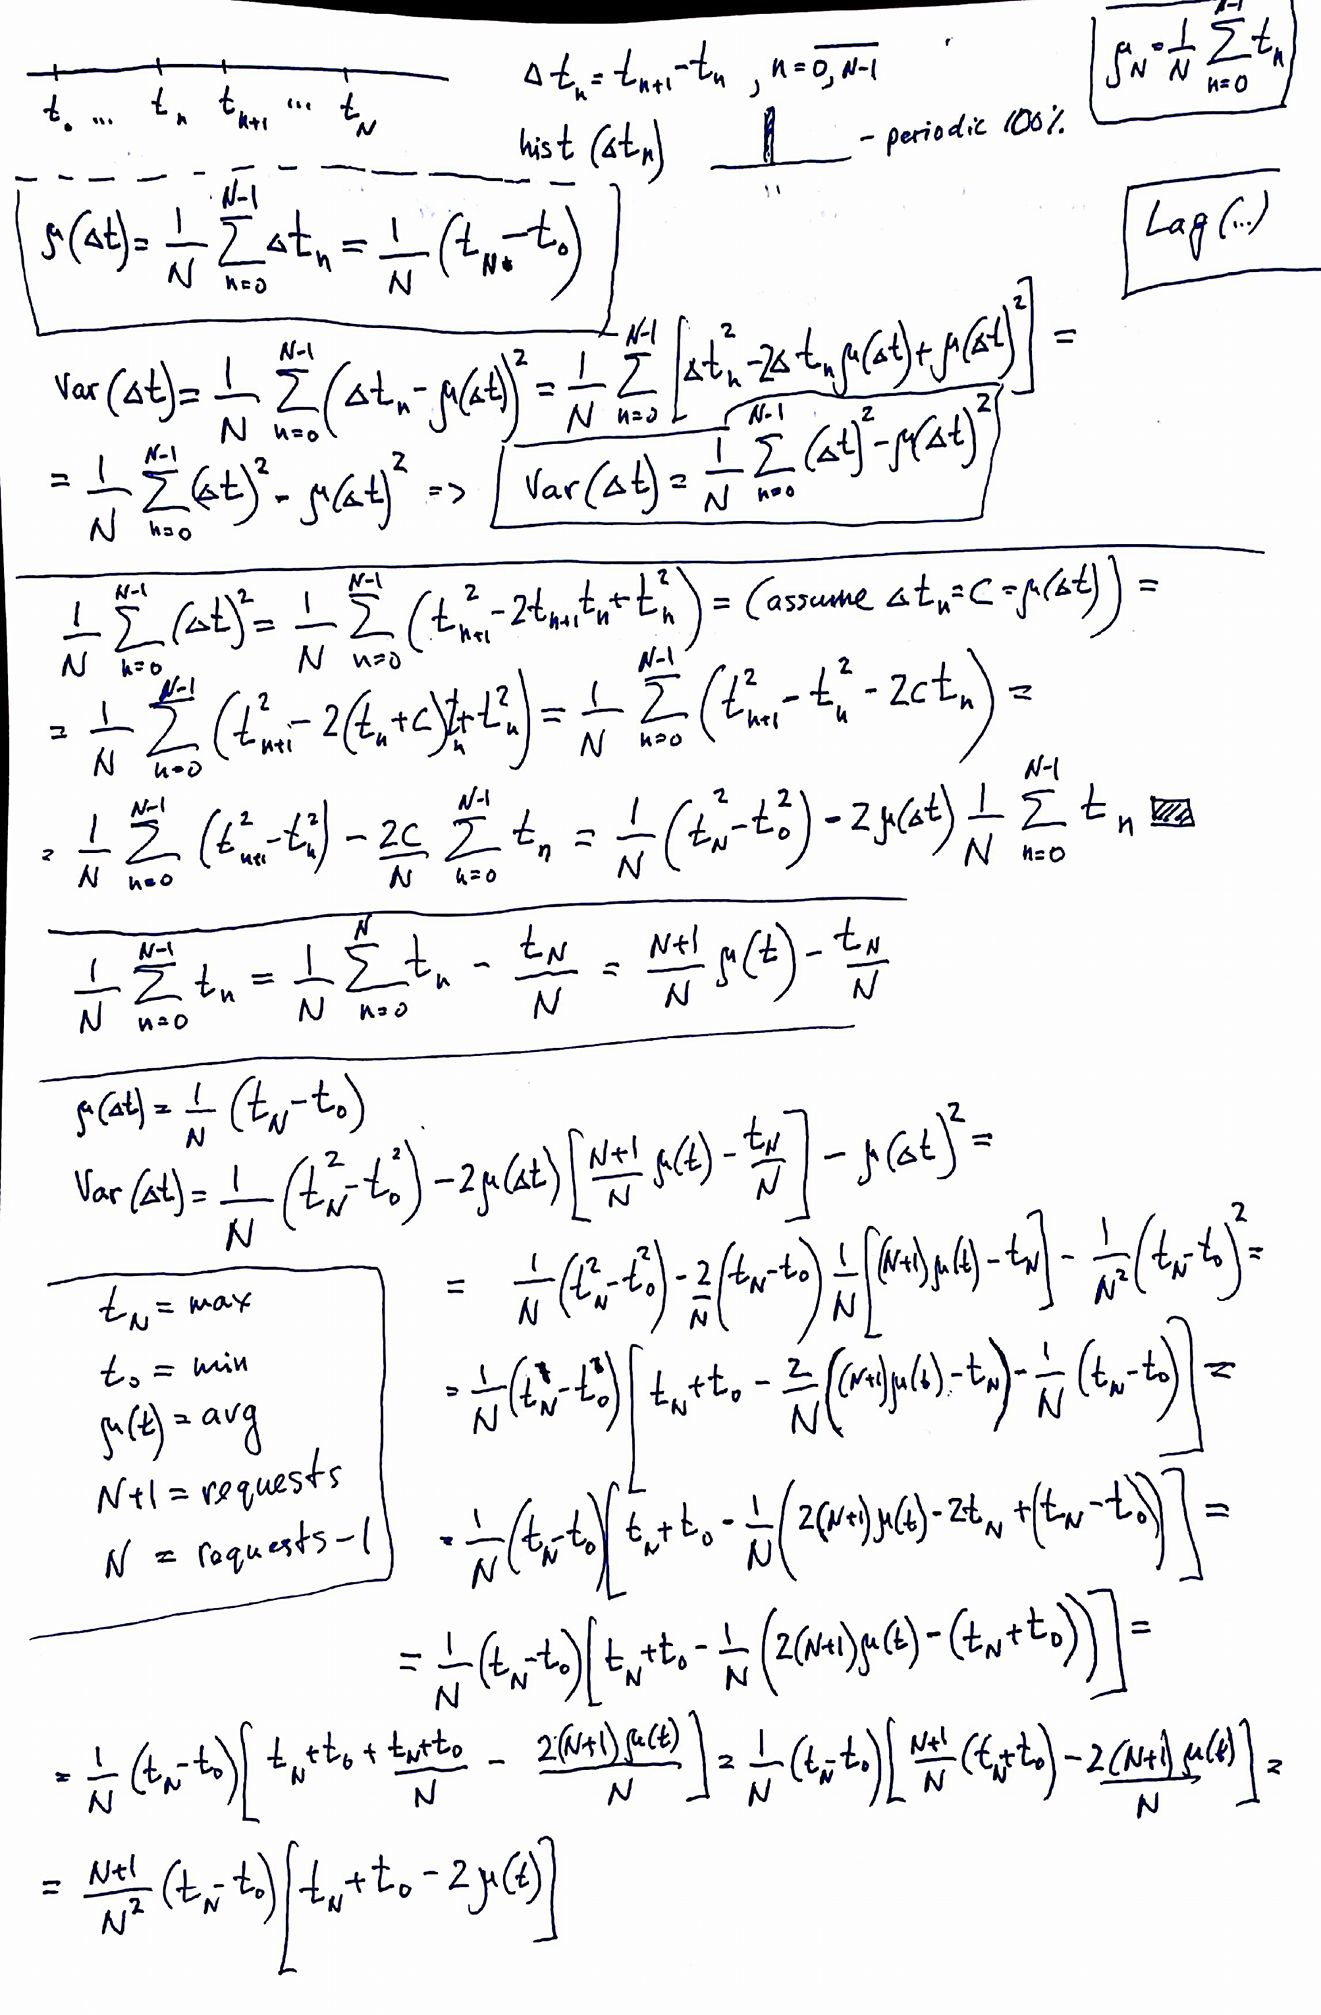 t₀ ... tₙ tₙ₊₁ ... t_N
Δtₙ = tₙ₊₁ - tₙ , n = \overline{0, N-1}
μ_N = \frac{1}{N} \sum_{n=0}^{N-1} tₙ
hist (Δtₙ) - periodic 100%
Lag (...)
μ(Δt) = \frac{1}{N} \sum_{n=0}^{N-1} Δtₙ = \frac{1}{N} (t_N - t₀)
Var (Δt) = \frac{1}{N} \sum_{n=0}^{N-1} (Δtₙ - μ(Δt))² = \frac{1}{N} \sum_{n=0}^{N-1} [Δtₙ² - 2Δtₙ μ(Δt) + μ(Δt)²] =
= \frac{1}{N} \sum_{n=0}^{N-1} (Δt)² - μ(Δt)² => Var (Δt) = \frac{1}{N} \sum_{n=0}^{N-1} (Δt)² - μ(Δt)²
\frac{1}{N} \sum_{n=0}^{N-1} (Δt)² = \frac{1}{N} \sum_{n=0}^{N-1} (tₙ₊₁² - 2tₙ₊₁tₙ + tₙ²) = (assume Δtₙ = C = μ(Δt)) =
= \frac{1}{N} \sum_{n=0}^{N-1} (tₙ₊₁² - 2(tₙ + C)tₙ + tₙ²) = \frac{1}{N} \sum_{n=0}^{N-1} (tₙ₊₁² - tₙ² - 2Ctₙ) =
= \frac{1}{N} \sum_{n=0}^{N-1} (tₙ₊₁² - tₙ²) - \frac{2C}{N} \sum_{n=0}^{N-1} tₙ = \frac{1}{N} (t_N² - t₀²) - 2μ(Δt) \frac{1}{N} \sum_{n=0}^{N-1} tₙ
\frac{1}{N} \sum_{n=0}^{N-1} tₙ = \frac{1}{N} \sum_{n=0}^{N} tₙ - \frac{t_N}{N} = \frac{N+1}{N} μ(t) - \frac{t_N}{N}
μ(Δt) = \frac{1}{N} (t_N - t₀)
Var (Δt) = \frac{1}{N} (t_N² - t₀²) - 2μ(Δt) [\frac{N+1}{N} μ(t) - \frac{t_N}{N}] - μ(Δt)² =
= \frac{1}{N} (t_N² - t₀²) - \frac{2}{N} (t_N - t₀) \frac{1}{N} [(N+1)μ(t) - t_N] - \frac{1}{N²} (t_N - t₀)² =
t_N = max
t₀ = min
μ(t) = avg
N+1 = requests
N = requests - 1
= \frac{1}{N} (t_N - t₀) [t_N + t₀ - \frac{2}{N} ((N+1)μ(t) - t_N) - \frac{1}{N} (t_N - t₀)] =
= \frac{1}{N} (t_N - t₀) [t_N + t₀ - \frac{1}{N} (2(N+1)μ(t) - 2t_N + (t_N - t₀))] =
= \frac{1}{N} (t_N - t₀) [t_N + t₀ - \frac{1}{N} (2(N+1)μ(t) - (t_N + t₀))] =
= \frac{1}{N} (t_N - t₀) [t_N + t₀ + \frac{t_N + t₀}{N} - \frac{2(N+1)μ(t)}{N}] = \frac{1}{N} (t_N - t₀) [\frac{N+1}{N} (t_N + t₀) - \frac{2(N+1)μ(t)}{N}] =
= \frac{N+1}{N²} (t_N - t₀) [t_N + t₀ - 2μ(t)]